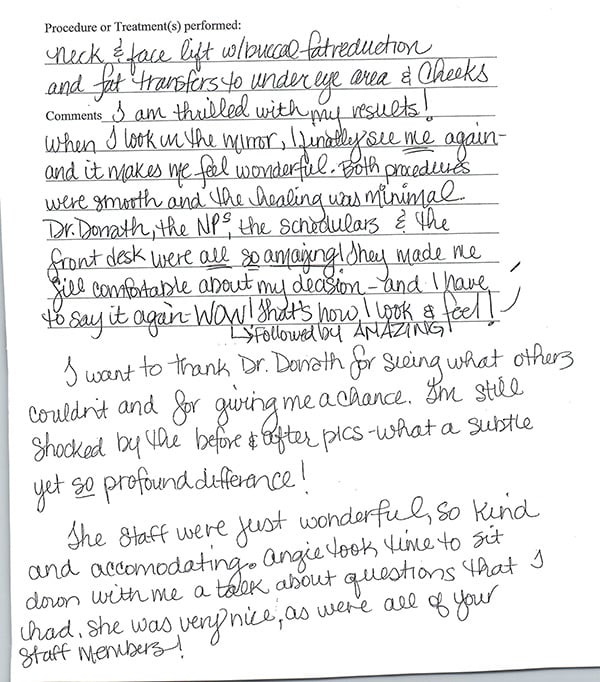 Procedure or Treatment(s) performed:
neck & face lift w/buccal fat reduction
and fat transfers to under eye area & Cheeks
Comments I am thrilled with my results!
when I look in the mirror, I finally see me again-
and it makes me feel wonderful. Both procedures
were smooth and the healing was minimal.
Dr. Donath, the NPs, the schedulars & the
front desk were all so amazing! They made me
fill comfortable about my decision - and I have
to say it again - WOW! that's how I look & feel!
↳ followed by AMAZING!
I want to thank Dr. Donath for seeing what others
couldn't and for giving me a chance. I'm still
shocked by the before & after pics - what a subtle
yet so profound difference!
The staff were just wonderful, so kind
and accomodating. Angie took time to sit
down with me a talk about questions that I
had. She was very nice, as were all of your
Staff Members!